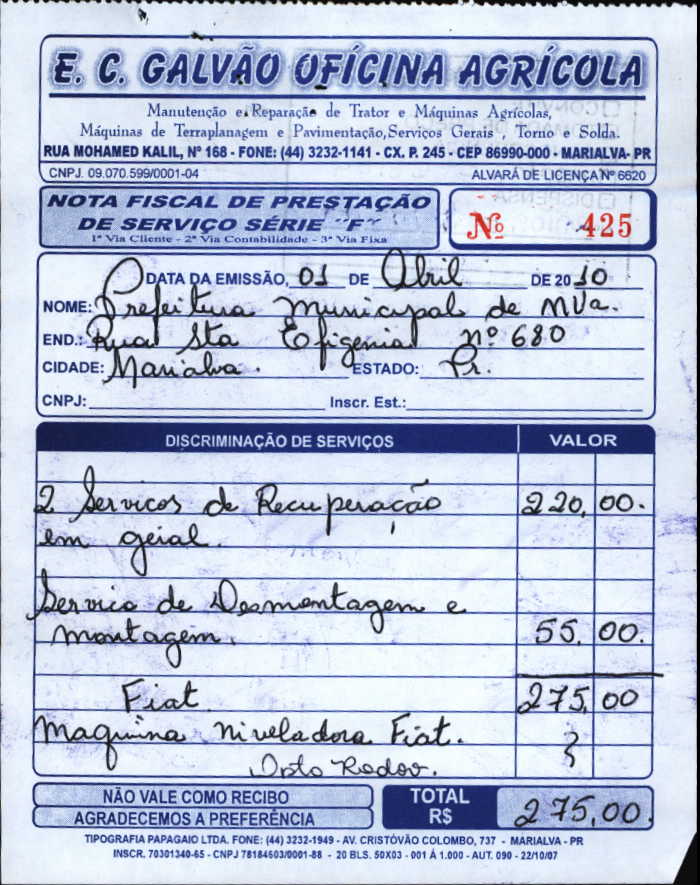 E. C. GALVÃO OFÍCINA AGRÍCOLA
Manutenção e Reparação de Trator e Máquinas Agrícolas,
Máquinas de Terraplanagem e Pavimentação,Serviços Gerais , Torno e Solda.
RUA MOHAMED KALIL, Nº 168 - FONE: (44) 3232-1141 - CX. P. 245 - CEP 86990-000 - MARIALVA- PR
CNPJ. 09.070.599/0001-04 ALVARÁ DE LICENÇA Nº 6620
NOTA FISCAL DE PRESTAÇÃO
DE SERVIÇO SÉRIE "F"
1ª Via Cliente - 2ª Via Contabilidade - 3ª Via Fixa
Nº 425
DATA DA EMISSÃO, 01 DE Abril DE 2010
NOME: Prefeitura municipal de MVa.
END.: Rua Sta Efigenia nº 680
CIDADE: Marialva. ESTADO: Pr.
CNPJ: Inscr. Est.:
DISCRIMINAÇÃO DE SERVIÇOS VALOR
2 Servicos de Recuperação 220,00.
em geral.
Servico de Desmontagem e
montagem. 55,00.
Fiat. 275,00
Maquina niveladora Fiat.
Dpto Rodov.
NÃO VALE COMO RECIBO
AGRADECEMOS A PREFERÊNCIA
TOTAL
R$ 275,00.
TIPOGRAFIA PAPAGAIO LTDA. FONE: (44) 3232-1949 - AV. CRISTÓVÃO COLOMBO, 737 - MARIALVA - PR
INSCR. 70301340-65 - CNPJ 78184603/0001-88 - 20 BLS. 50X03 - 001 Á 1.000 - AUT. 090 - 22/10/07